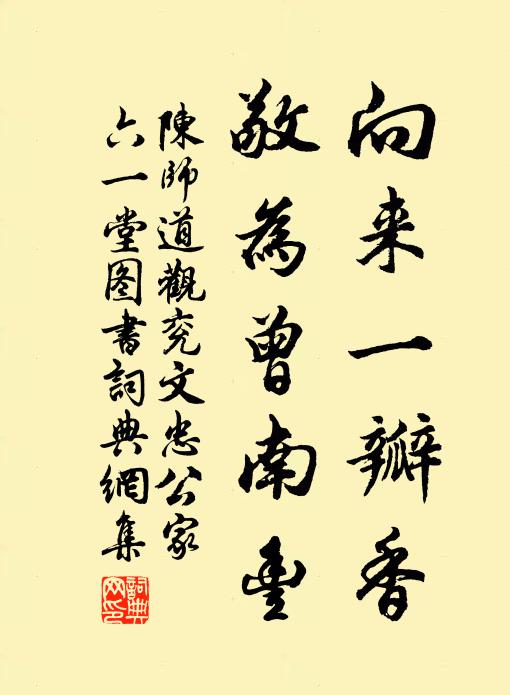 向来一瓣香
敬為曾南豊
陳師道觀兖文忠公家
六一堂图書詞典網集
詞典网印